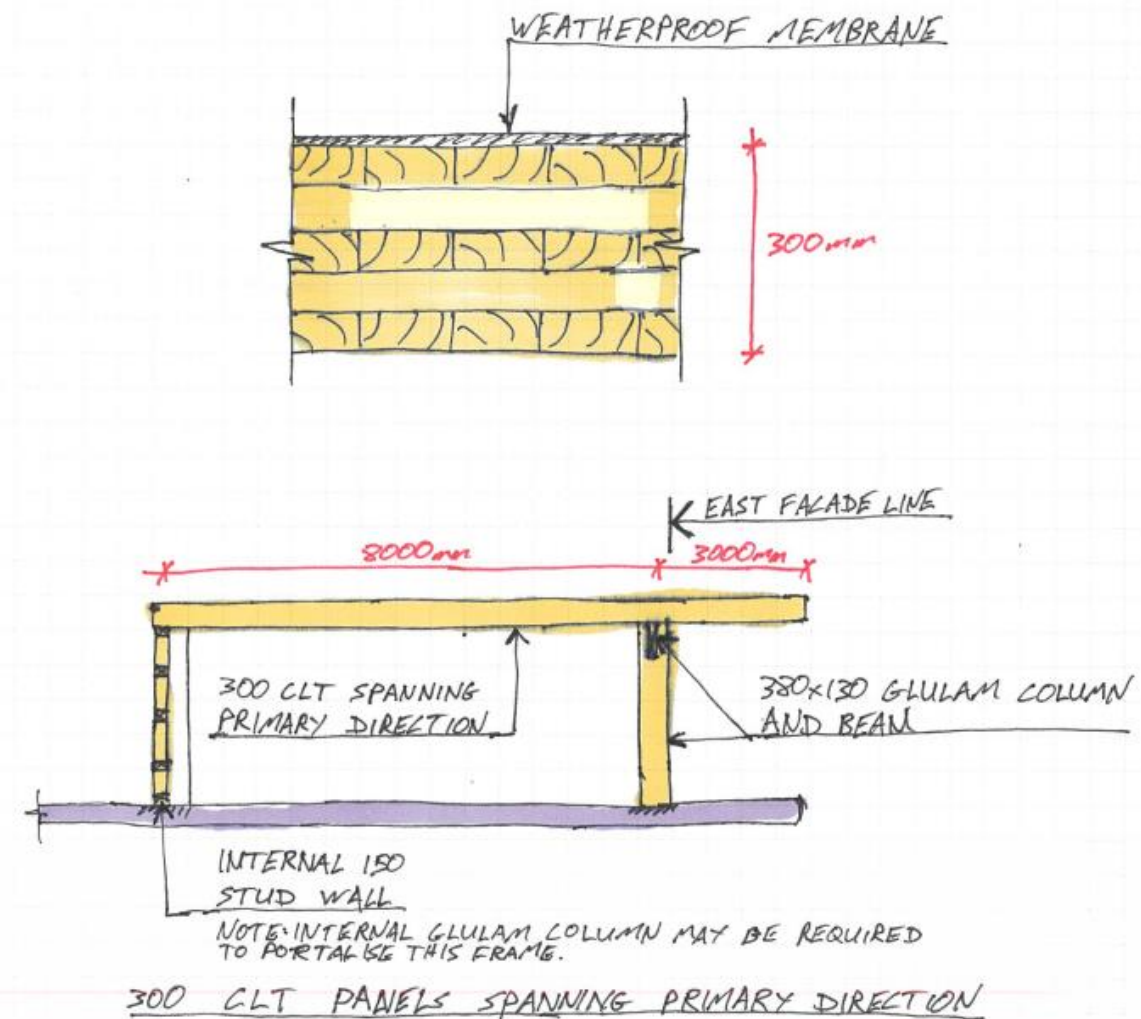 WEATHERPROOF MEMBRANE
300mm
EAST FACADE LINE
8000mm
3000mm
300 CLT SPANNING
PRIMARY DIRECTION
380x130 GLULAM COLUMN
AND BEAM
INTERNAL 150
STUD WALL
NOTE: INTERNAL GLULAM COLUMN MAY BE REQUIRED
TO PORTALISE THIS FRAME.
300 CLT PANELS SPANNING PRIMARY DIRECTION